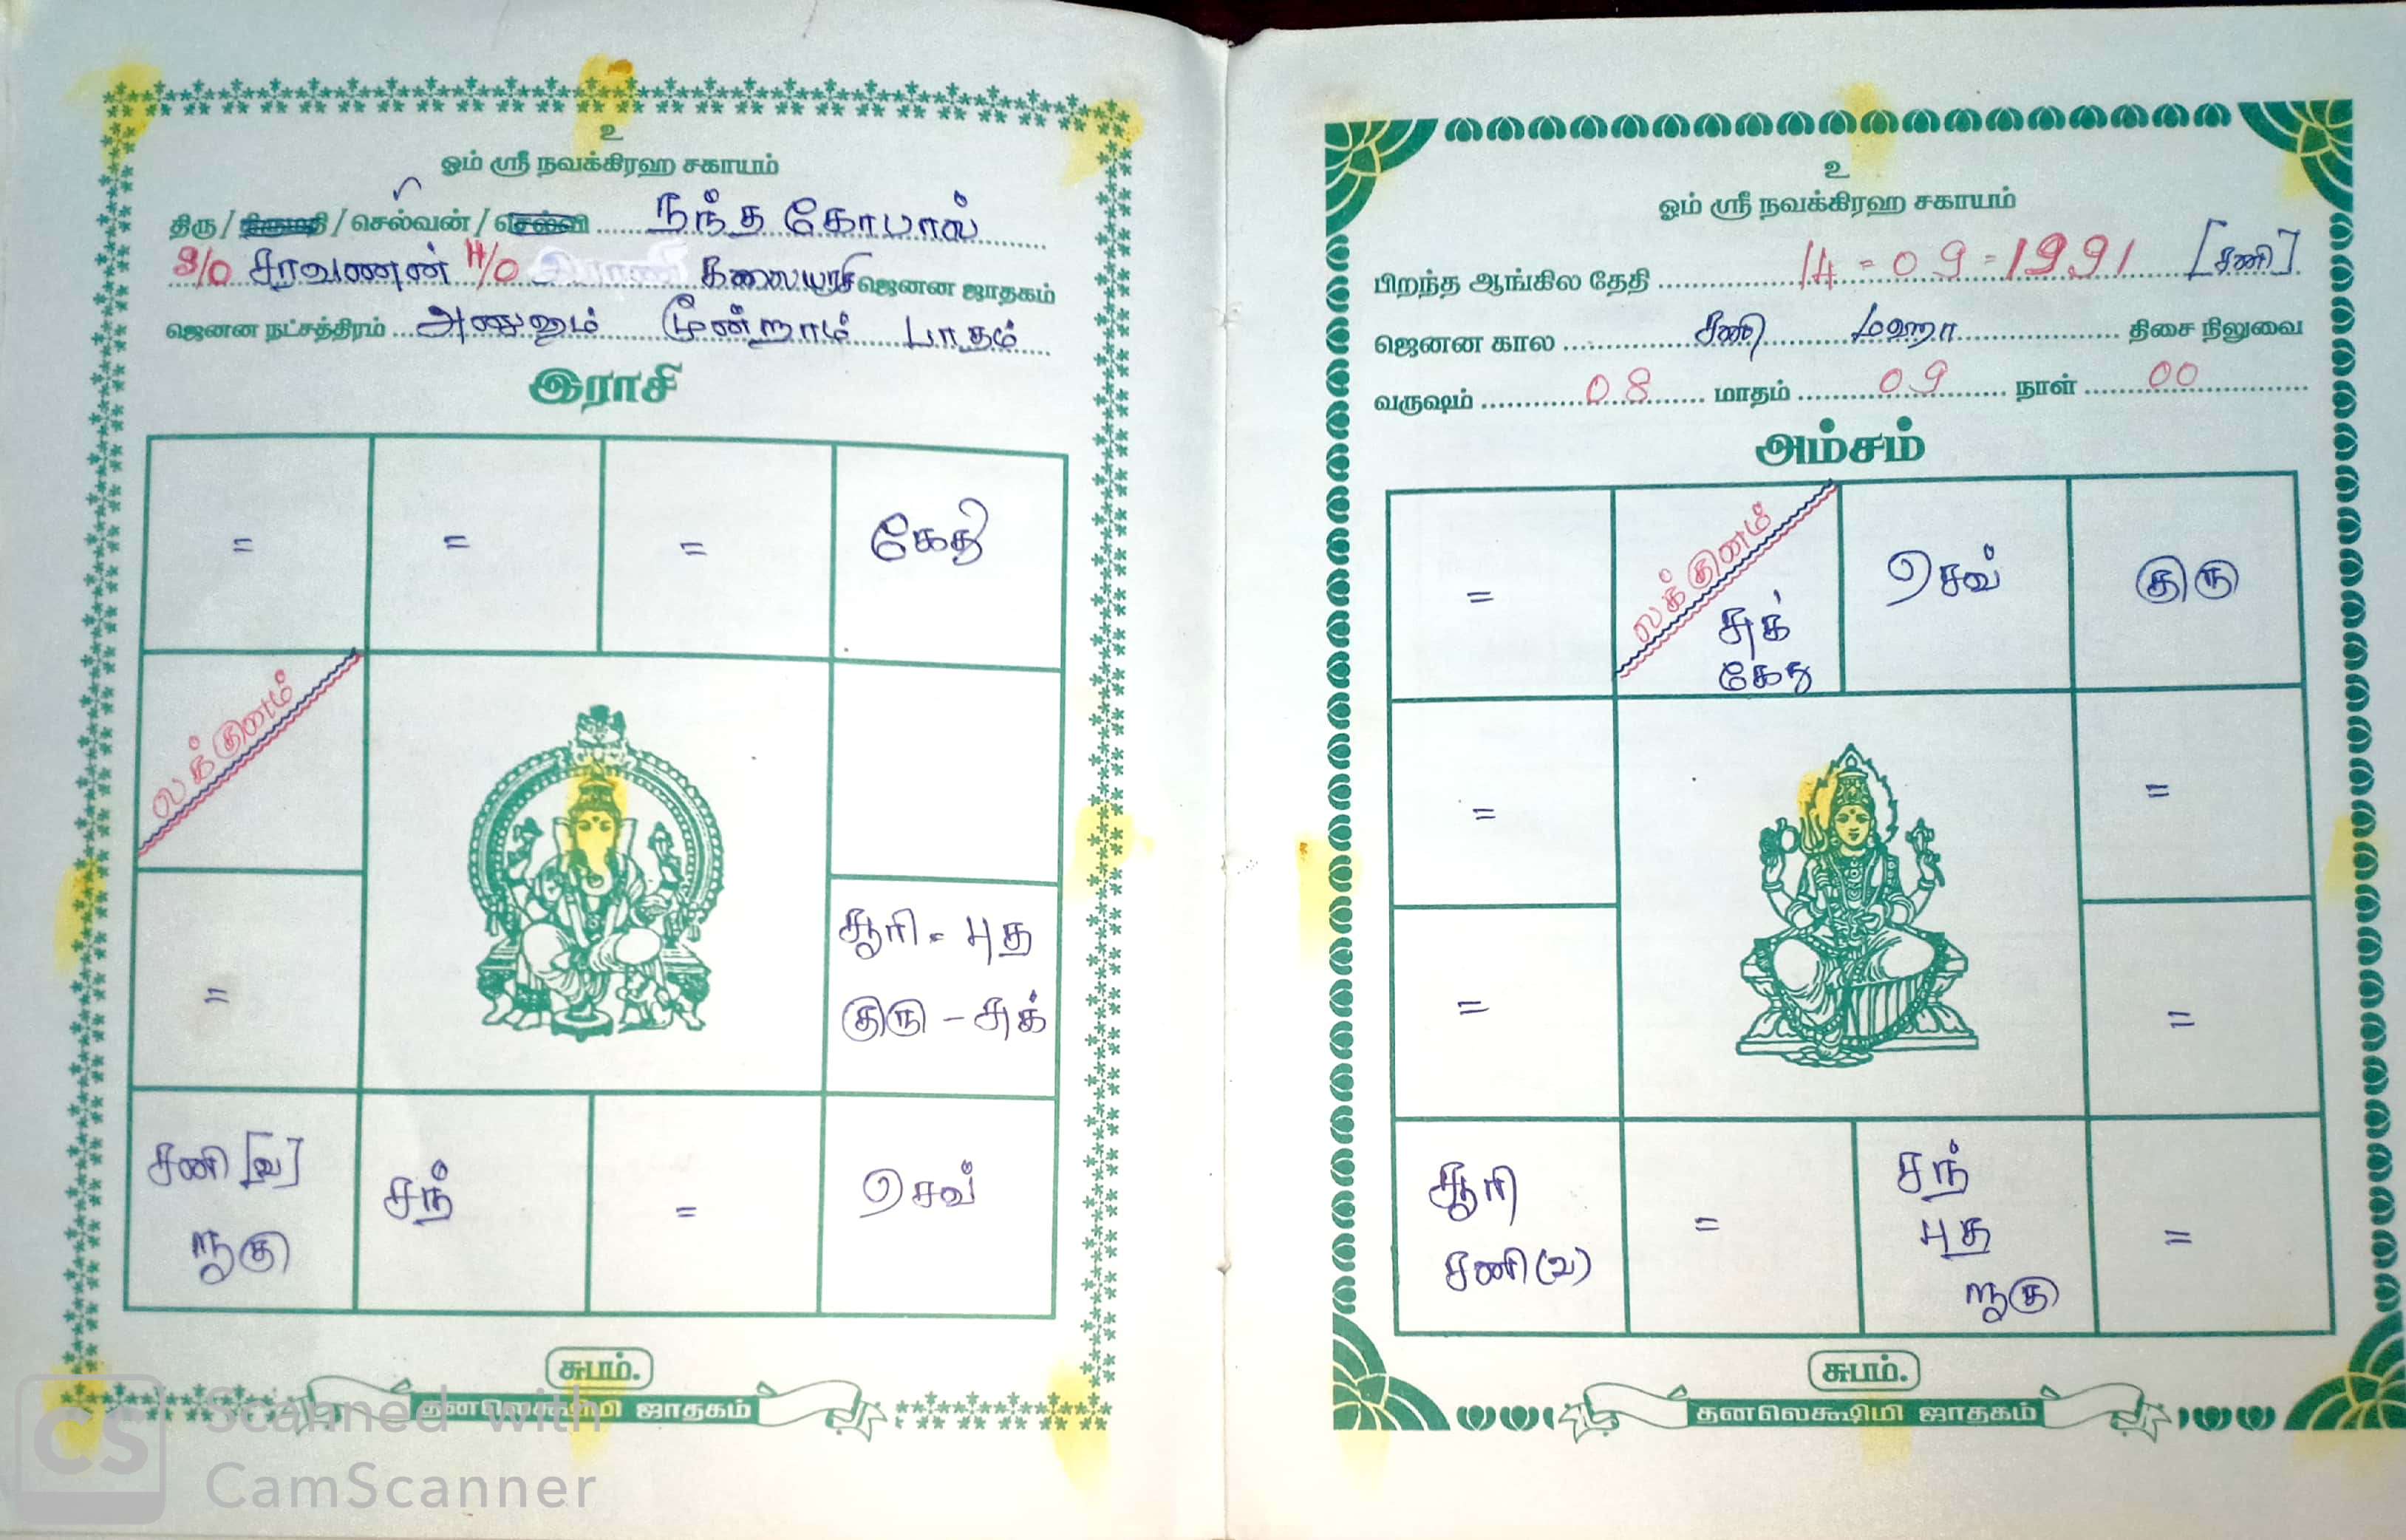 உ
ஓம் ஸ்ரீ நவக்கிரஹ சகாயம்
திரு / திருமதி / செல்வன் / செல்வி நந்த கோபால்
S/O சரவணன் H/O கலையரசி ஜெனன ஜாதகம்
ஜெனன நட்சத்திரம் அனுஷம் மூன்றாம் பாதம்
இராசி
= = = கேது
லக்குனம்
சூரி - புத
= குரு - சுக்
சனி [வ] சந் = செவ்
ராகு
சுபம்.
தனலெக்ஷிமி ஜாதகம்
உ
ஓம் ஸ்ரீ நவக்கிரஹ சகாயம்
பிறந்த ஆங்கில தேதி 14-09-1991 [சனி]
ஜெனன கால சனி மஹா திசை நிலுவை
வருஷம் 08 மாதம் 09 நாள் 00
அம்சம்
= லக்குனம் செவ் குரு
சுக்
கேது
= =
= =
சூரி = சந் =
சனி (வ) புத
ராகு
சுபம்.
தனலெக்ஷிமி ஜாதகம்
CS Scanned with
CamScanner